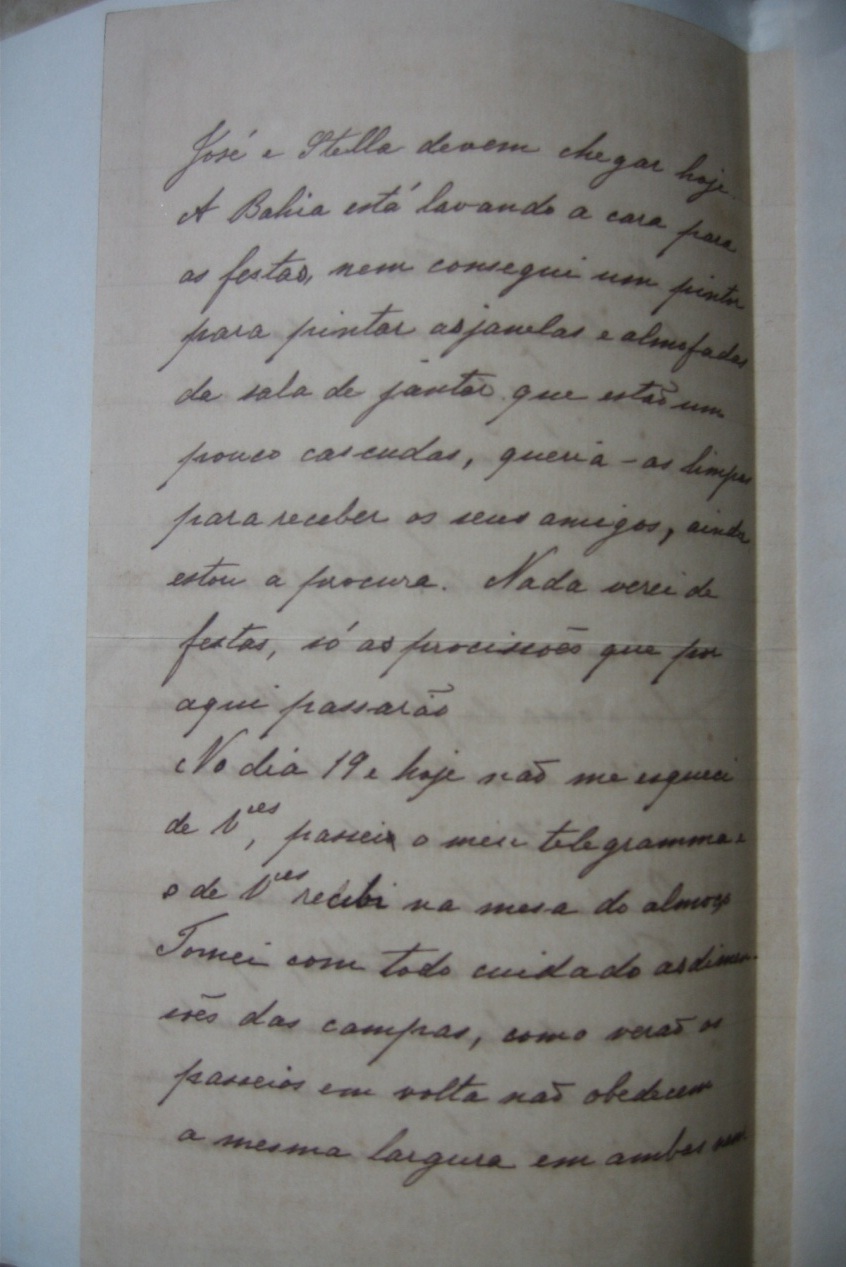 José e Stella devem chegar hoje.
A Bahia está lavando a cara para
as festas, nem consegui um pintor
para pintar as janelas e almofadas
da sala de jantar que estão um
pouco cascudas, queria-as limpas
para receber os seus amigos, ainda
estou a procura. Nada verei de
festas, só as procissões que por
aqui passarão
No dia 19 e hoje não me esqueci
de Vces, passei o meu telegramma e
o de Vces recebi na mesa do almoço
Tomei com todo cuidado as dimen-
sões das campas, como verão os
passeios em volta não obedecem
a mesma largura em ambas nem